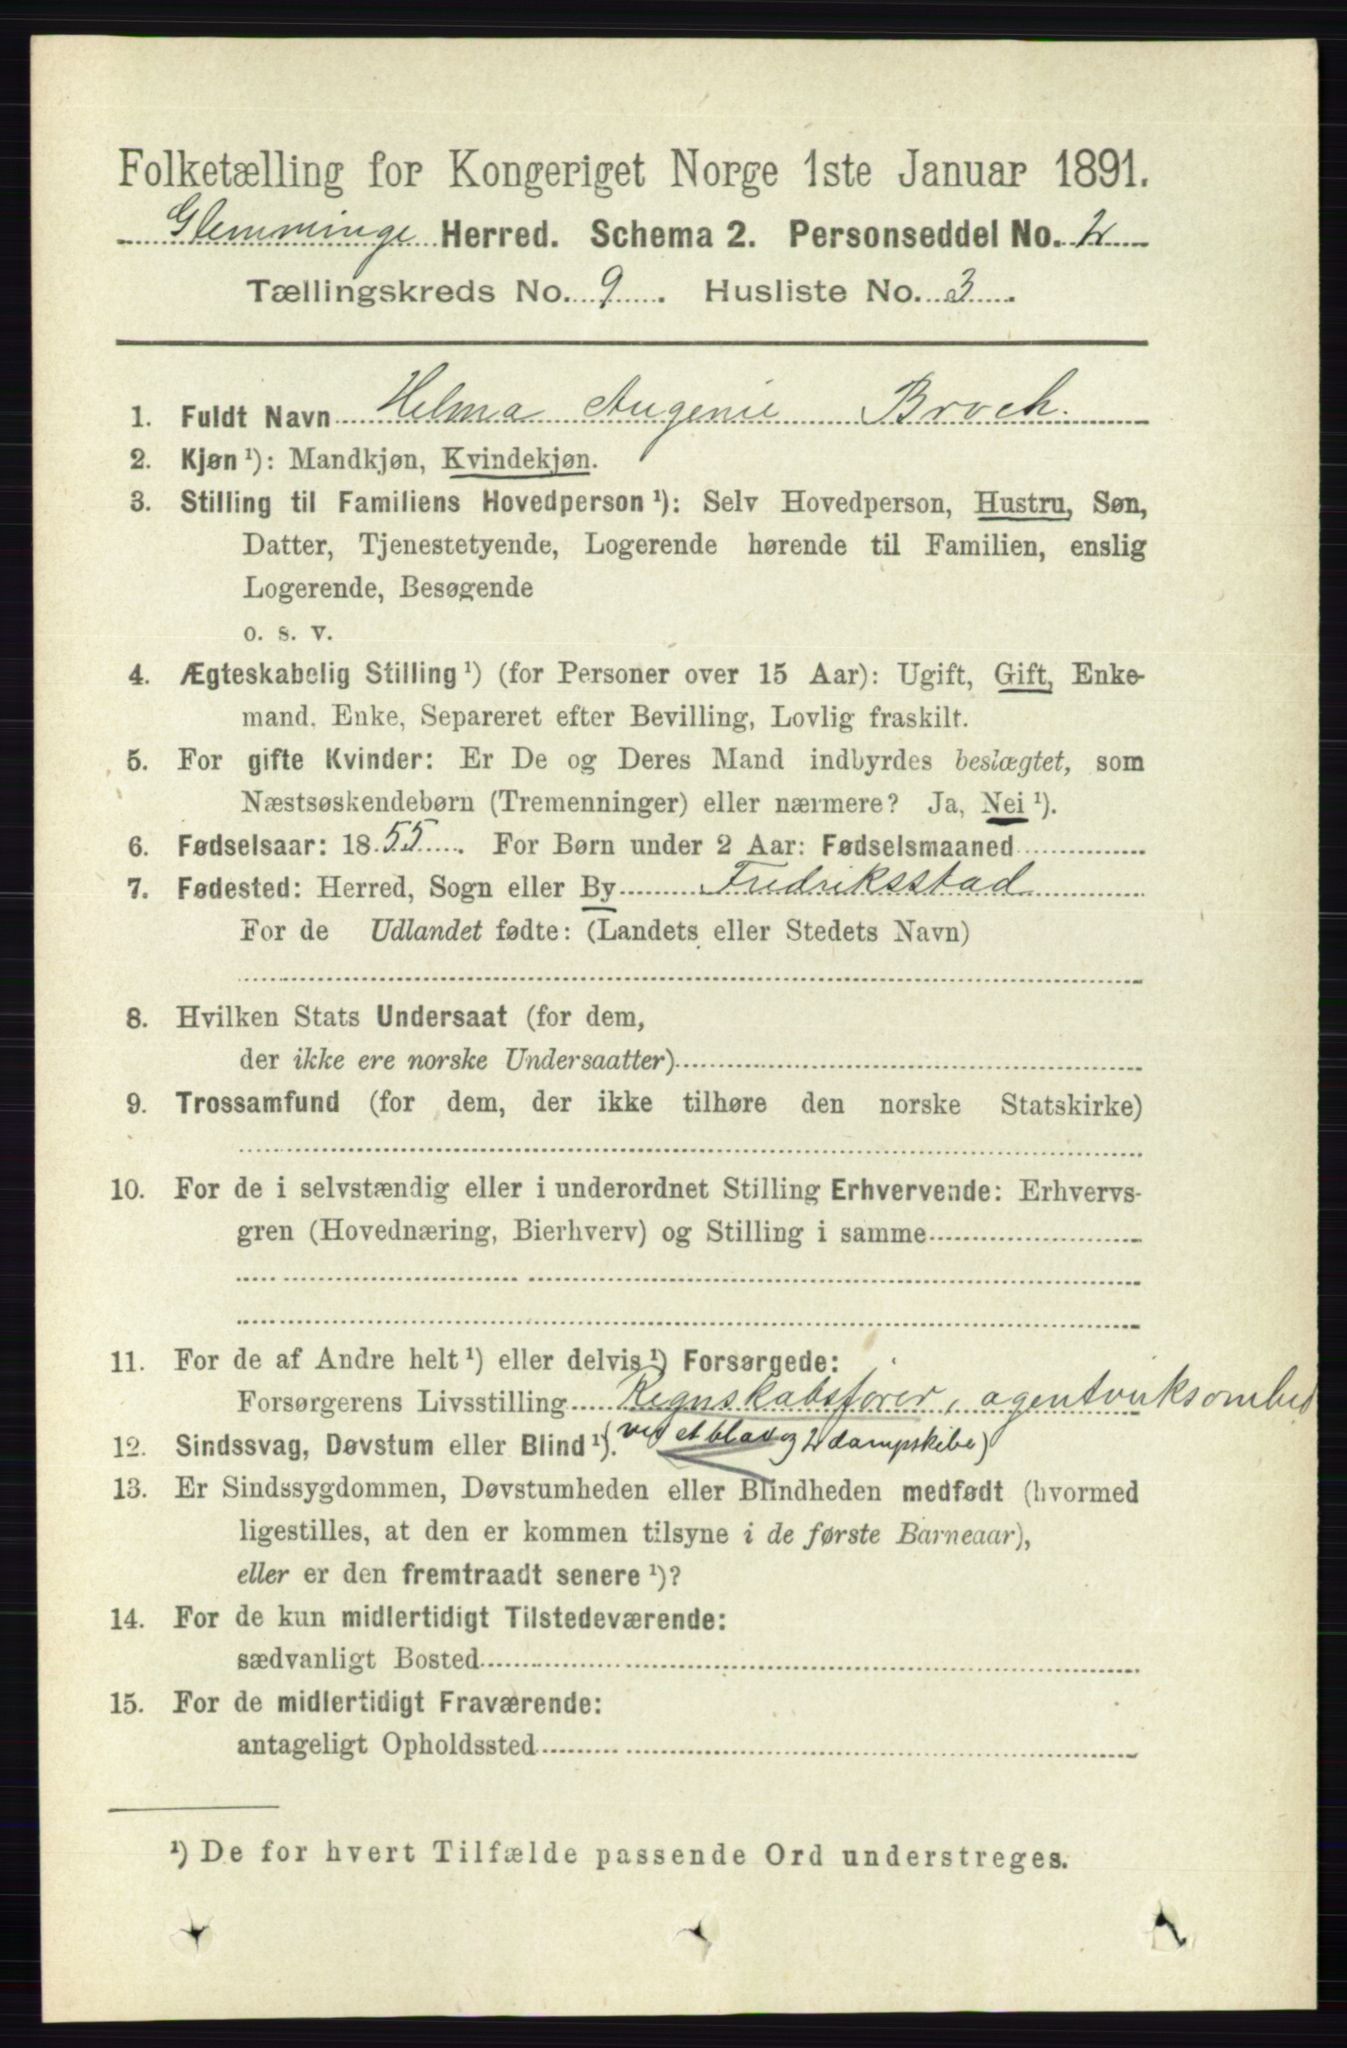 Folketælling for Kongeriget Norge 1ste Januar 1891.
Glemminge Herred. Schema 2. Personseddel No. 2
Tællingskreds No. 9. Husliste No. 3.
1. Fuldt Navn Helma Augenie Broch.
2. Kjøn ¹): Mandkjøn, Kvindekjøn.
3. Stilling til Familiens Hovedperson ¹): Selv Hovedperson, Hustru, Søn,
Datter, Tjenestetyende, Logerende hørende til Familien, enslig
Logerende, Besøgende
o. s. v.
4. Ægteskabelig Stilling ¹) (for Personer over 15 Aar): Ugift, Gift, Enke-
mand, Enke, Separeret efter Bevilling, Lovlig fraskilt.
5. For gifte Kvinder: Er De og Deres Mand indbyrdes beslægtet, som
Næstsøskendebørn (Tremenninger) eller nærmere? Ja, Nei ¹).
6. Fødselsaar: 1855. For Børn under 2 Aar: Fødselsmaaned
7. Fødested: Herred, Sogn eller By Fredriksstad
For de Udlandet fødte: (Landets eller Stedets Navn)
8. Hvilken Stats Undersaat (for dem,
der ikke ere norske Undersaatter)
9. Trossamfund (for dem, der ikke tilhøre den norske Statskirke)
10. For de i selvstændig eller i underordnet Stilling Erhvervende: Erhvervs-
gren (Hovednæring, Bierhverv) og Stilling i samme
11. For de af Andre helt ¹) eller delvis ¹) Forsørgede:
Forsørgerens Livsstilling Regnskabsfører, agentvirksomhed
12. Sindssvag, Døvstum eller Blind ¹). (ved et blad og 2 dampskibe)
13. Er Sindssygdommen, Døvstumheden eller Blindheden medfødt (hvormed
ligestilles, at den er kommen tilsyne i de første Barneaar),
eller er den fremtraadt senere ¹)?
14. For de kun midlertidigt Tilstedeværende:
sædvanligt Bosted
15. For de midlertidigt Fraværende:
antageligt Opholdssted
¹) De for hvert Tilfælde passende Ord understreges.